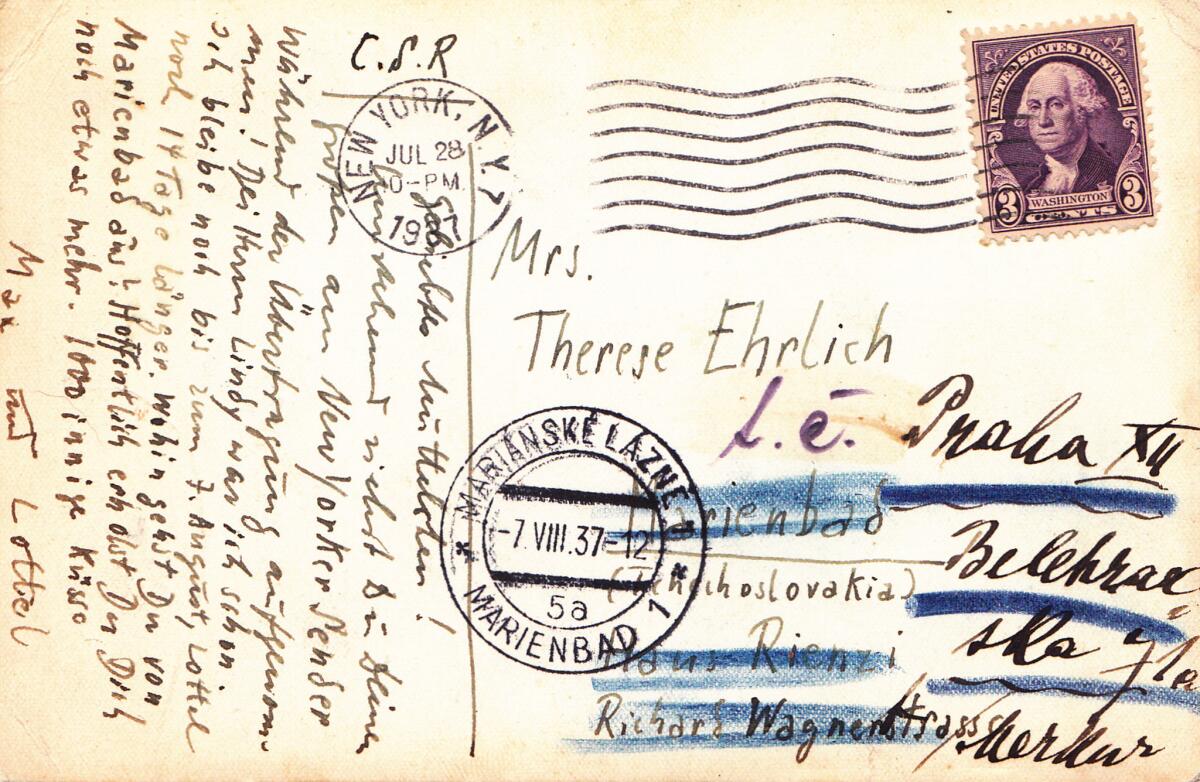 C.S.R
NEW YORK, N.Y.
JUL 28
PM
19
UNITED STATES POSTAGE
3 WASHINGTON 3
CENTS
Geliebtes Mutterherz!
Umstehend siehst Du Deinen
großen am New Yorker Sender
während der Übertragung aufgenom-
men! Bei Herrn Lindy war ich schon.
Ich bleibe noch bis zum 7. August, Lottel
noch 14 Tage länger. Wohin gehst Du von
Marienbad aus? Hoffentlich erholst Du Dich
noch etwas mehr. 1000 innige Küsse
Max und Lottel
Mrs.
Therese Ehrlich
t. č. Praha XII
Marienbad
Belehrad
(Tchechoslovakia)
ska
Haus Rienzi
Merkur
Richard Wagnerstrasse
MARIÁNSKÉ LÁZNĚ
-7.VIII.37-12
5a
* MARIENBAD 1 *